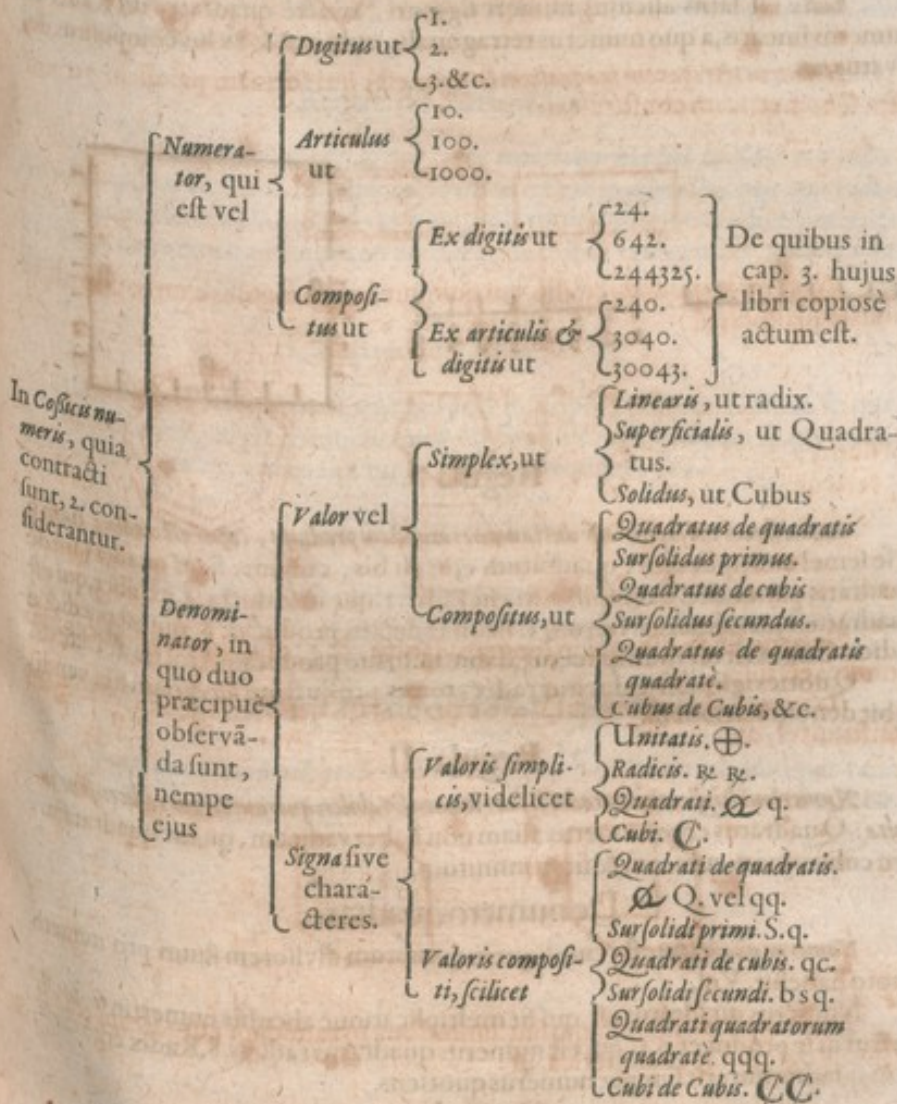 In Cossicis nu-
meris, quia
contracti
sunt, 2. con-
siderantur.
Numera-
tor, qui
est vel
Digitus ut
1.
2.
3. &c.
Articulus
ut
10.
100.
1000.
Composi-
tus ut
Ex digitis ut
24.
642.
244325.
Ex articulis &
digitis ut
240.
3040.
30043.
De quibus in
cap. 3. hujus
libri copiosè
actum est.
Denomi-
nator, in
quo duo
præcipuè
observā-
da sunt,
nempe
ejus
Valor vel
Simplex, ut
Linearis, ut radix.
Superficialis, ut Quadra-
tus.
Solidus, ut Cubus
Compositus, ut
Quadratus de quadratis
Sursolidus primus.
Quadratus de cubis
Sursolidus secundus.
Quadratus de quadratis
quadratè.
Cubus de Cubis, &c.
Signa sive
chará-
cteres.
Valoris simpli-
cis, videlicet
Unitatis. ⊕.
Radicis. ℞ ℞.
Quadrati. Q q.
Cubi. ₡.
Valoris composi-
ti, scilicet
Quadrati de quadratis.
Q Q. vel qq.
Sursolidi primi. S. q.
Quadrati de cubis. qc.
Sursolidi secundi. b s q.
Quadrati quadratorum
quadratè. qqq.
Cubi de Cubis. ₡₡.